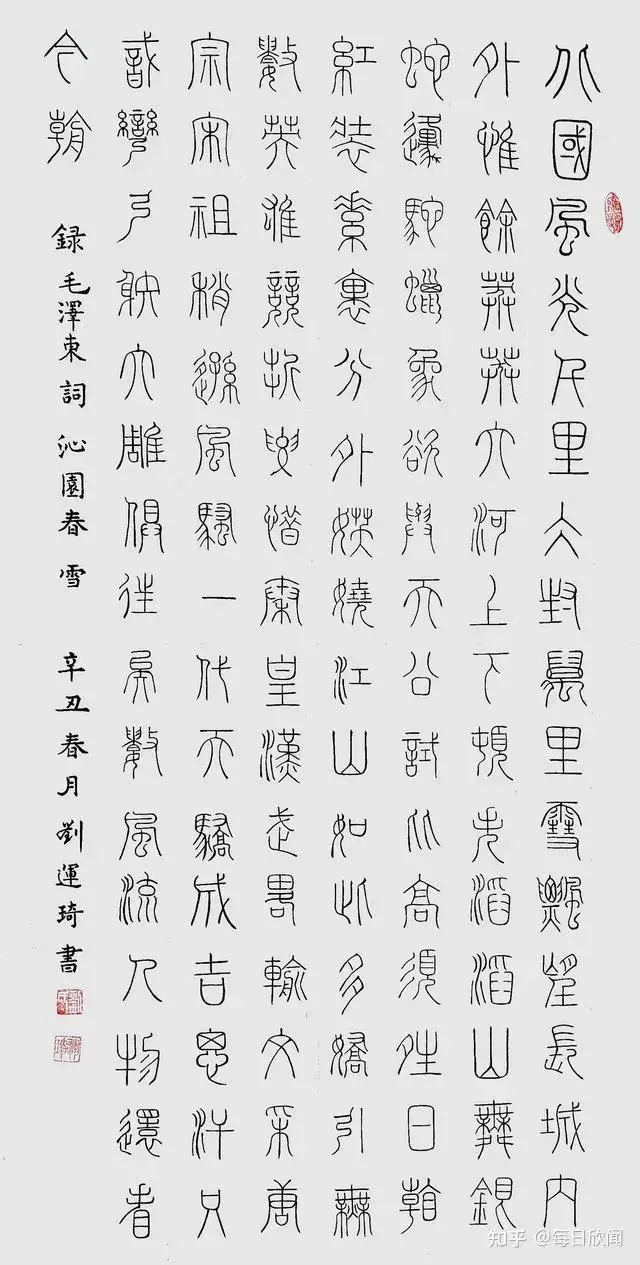 北國風光千里冰封萬里雪飄望長城內
外惟餘莽莽大河上下頓失滔滔山舞銀
蛇邍馳蠟象欲與天公試比高須晴日看
紅裝素裹分外妖嬈江山如此多嬌引無
數英雄競折腰惜秦皇漢武略輸文采唐
宗宋祖稍遜風騷一代天驕成吉思汗只
識彎弓射大雕俱往矣數風流人物還看
今朝
録毛澤東詞 沁園春 雪 辛丑春月 劉運琦書
知乎 @每日欣闻